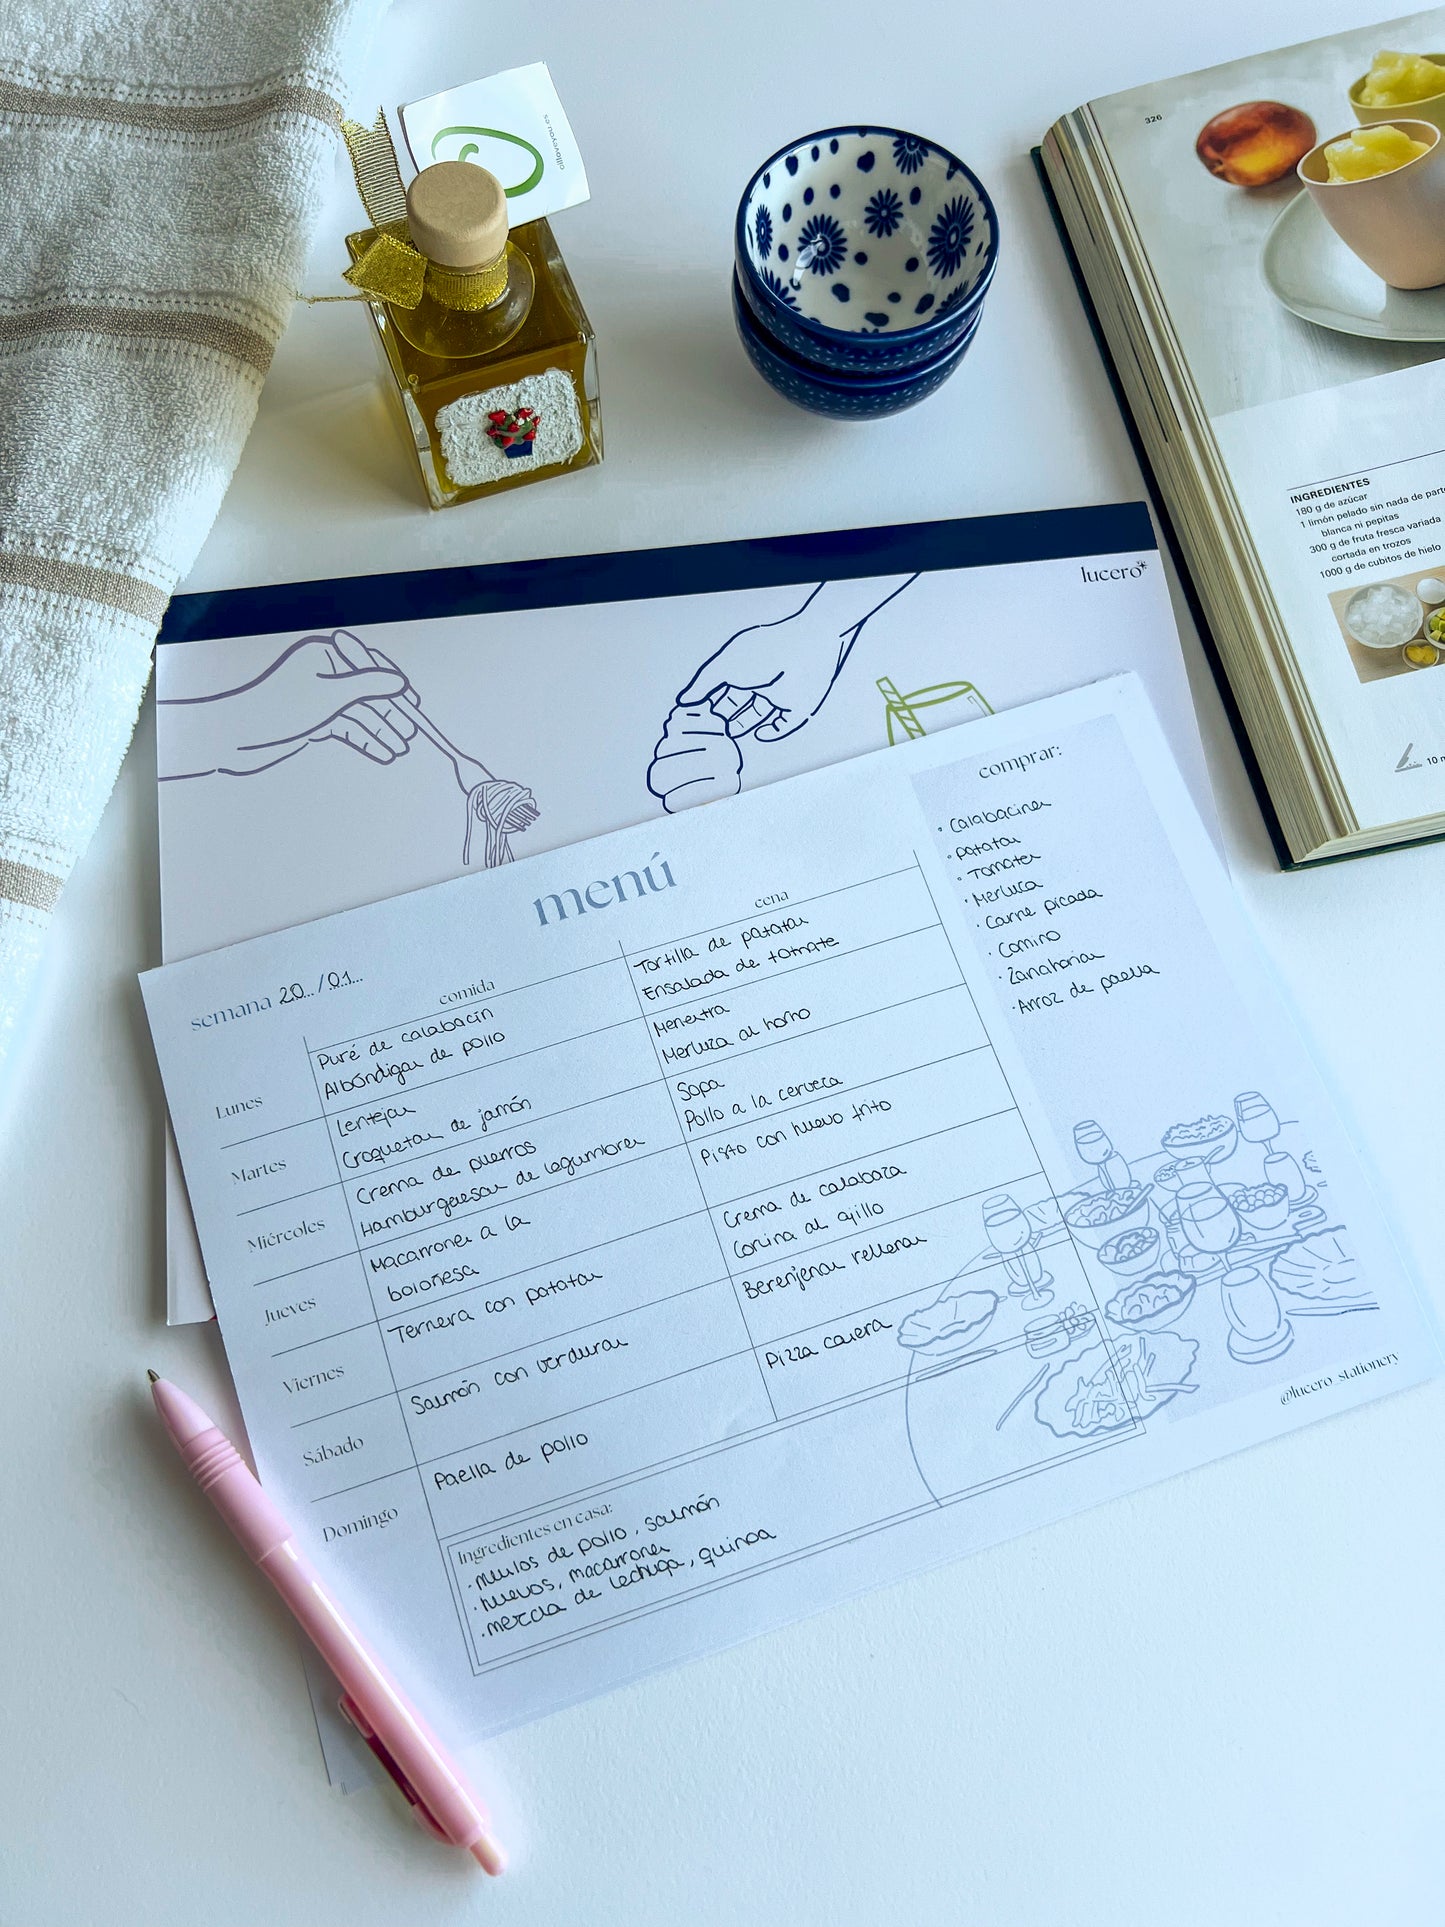 oilloveyou.es
326
INGREDIENTES
180 g de azúcar
1 limón pelado sin nada de parte
blanca ni pepitas
300 g de fruta fresca variada
cortada en trozos
1000 g de cubitos de hielo
10 m
lucero*
menú
semana 20 / 01
comida
cena
Lunes
Puré de calabacín
Albóndigas de pollo
Tortilla de patatas
Ensalada de tomate
Martes
Lentejas
Croquetas de jamón
Menestra
Merluza al horno
Miércoles
Crema de puerros
Hamburguesas de legumbres
Sopa
Pollo a la cerveza
Jueves
Macarrones a la
boloñesa
Pisto con huevo frito
Viernes
Ternera con patatas
Crema de calabaza
Corvina al ajillo
Sábado
Salmón con verduras
Berenjenas rellenas
Domingo
Paella de pollo
Pizza casera
Ingredientes en casa:
· muslos de pollo, salmón
· huevos, macarrones
· mezcla de lechuga, quinoa
comprar:
· Calabacines
· patatas
· Tomates
· Merluza
· Carne picada
· Comino
· Zanahorias
· Arroz de paella
@lucero_stationery